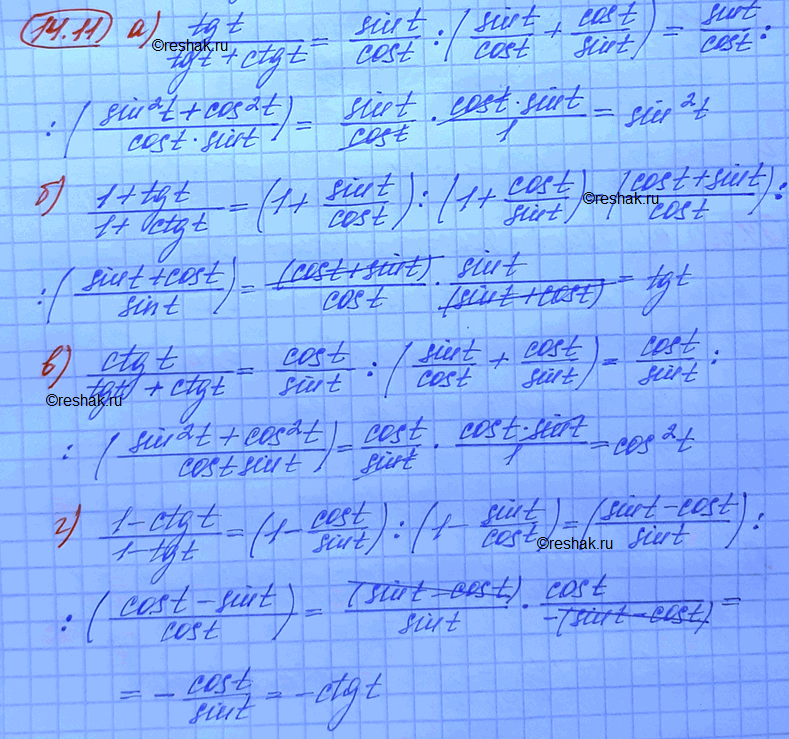 14.11 а) tg t / (tg t + ctg t) = sin t / cos t : (sin t / cos t + cos t / sin t) = sin t / cos t :
©reshak.ru
: ((sin²t + cos²t) / (cos t · sin t)) = sin t / cos t · (cos t · sin t) / 1 = sin²t
б) (1 + tg t) / (1 + ctg t) = (1 + sin t / cos t) : (1 + cos t / sin t) ((cos t + sin t) / cos t) :
©reshak.ru
: ((sin t + cos t) / sin t) = (cos t + sin t) / cos t · sin t / (sin t + cos t) = tg t
в) ctg t / (tg t + ctg t) = cos t / sin t : (sin t / cos t + cos t / sin t) = cos t / sin t :
©reshak.ru
: ((sin²t + cos²t) / (cos t sin t)) = cos t / sin t · (cos t · sin t) / 1 = cos²t
г) (1 - ctg t) / (1 - tg t) = (1 - cos t / sin t) : (1 - sin t / cos t) = ((sin t - cos t) / sin t) :
©reshak.ru
: ((cos t - sin t) / cos t) = (sin t - cos t) / sin t · cos t / -(sin t - cos t) =
= - cos t / sin t = - ctg t